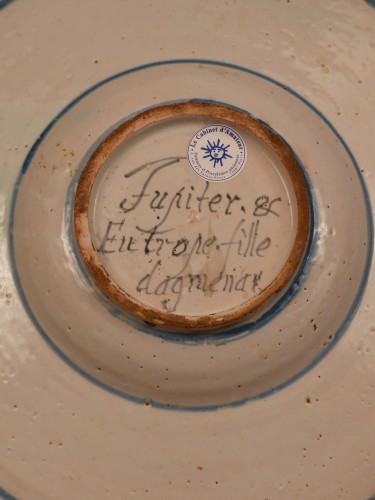 Le Cabinet d'Amateur
Jupiter. &
Eutrope. fille
dagmenar